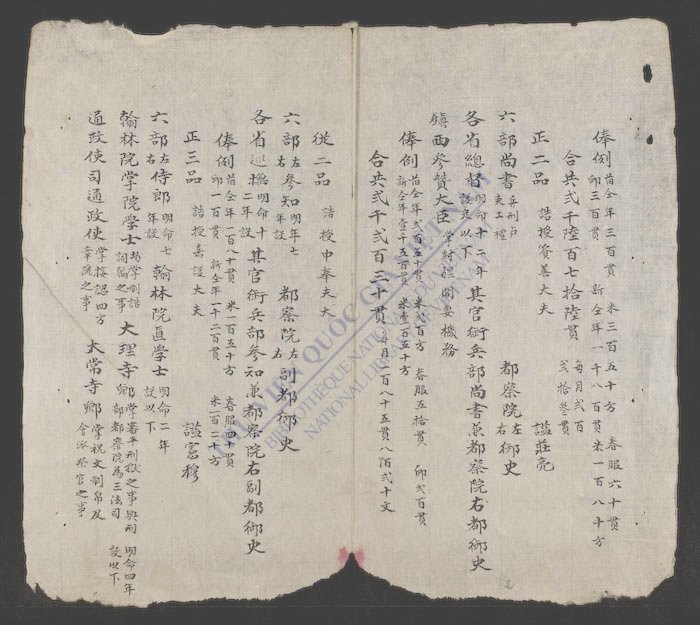 俸例 昔全年三百貫 米三百五十方 春服六十貫
卯三百貫 新全年一千八百貫 米一百八十方
合共弍千陸百七拾陸貫 每月弍百弍拾叁貫
正二品 誥授資善大夫 謚莊亮
六部尚書 兵刑户吏工禮 都察院左右都御史
各省總督 明命十二年設以下 其官銜兵部尚書兼都察院右都御史
鎮西參贊大臣 掌封禮關要機務
俸例 昔全年弍百五十貫 米弍百方 春服五拾貫 卯弍百貫
新全年壹千五百貫 米壹百五十方
合共弍千弍百三十貫 每月一百八十五貫八陌弍十文
從二品 誥授中奉大夫
六部左右參知 明年七年設 都察院左右副都御史
各省巡撫 明命十二年設 其官銜兵部參知兼都察院右副都御史
俸例 昔全年一百八十貫 米一百五十方 春服四十貫
卯一百貫 新全年一千二百貫 米一百二十方
正三品 誥授嘉議大夫 謚富穆
六部左右侍郎 明命七年設 翰林院直學士 明命二年設以下
翰林院掌院學士 掌制誥詞翰之事 大理寺卿 掌審平刑獄之事與刑部都察院為三法司 明命四年設以下
通政使司通政使 掌接認四方章疏之事 太常寺卿 掌祝文制帛及會派祭官之事
THƯ VIỆN QUỐC GIA VIỆT NAM
BIBLIOTHÈQUE NATIONALE DU VIETNAM
NATIONAL LIBRARY OF VIETNAM